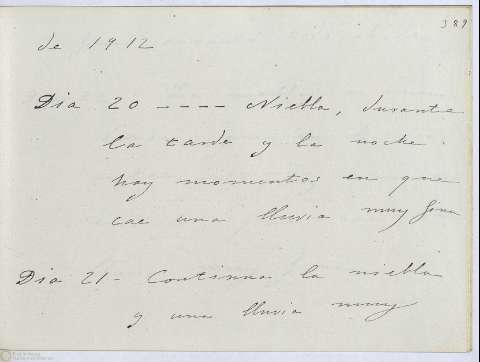 389
de 1912
Dia 20 ---- Niebla, durante
la tarde y la noche
hay momentos en que
cae una lluvia muy fina
Dia 21 - Continua la niebla
y una lluvia muy